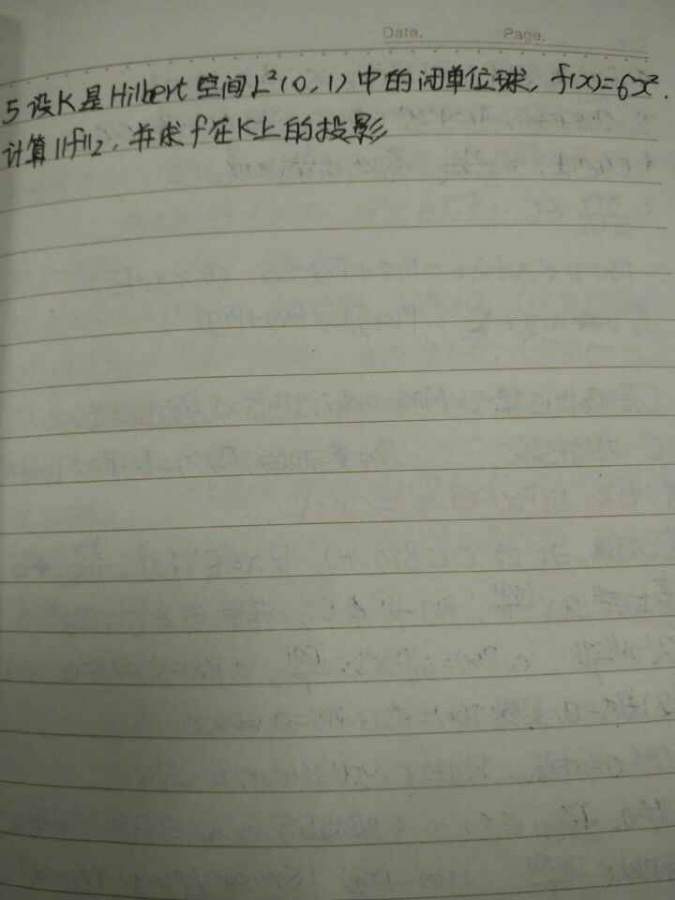 Date. Page.
5 设K是Hilbert空间L²(0,1)中的闭单位球, f(x)=6x².
计算||f||₂, 并求f在K上的投影